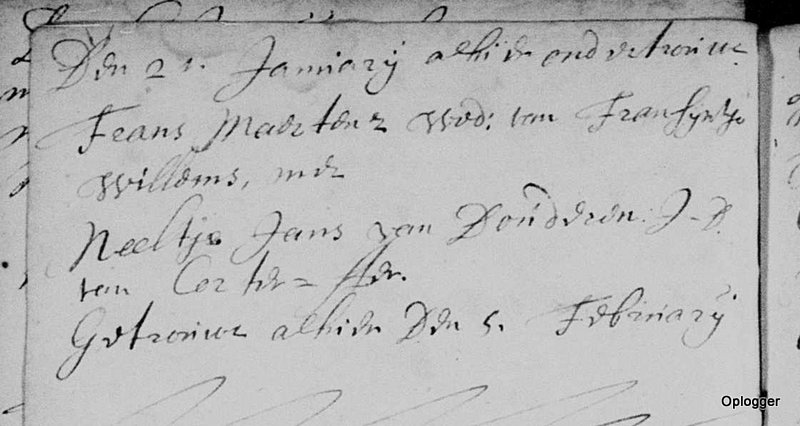 Den 21. Januarij alhier ondertrouwt
Frans Maertens wed: van Fransyntje
Willems, met
Neeltje Jans van Donderen J-D.
van Corten=
Getrouwt alhier Den 5. Februarij
Oplogger